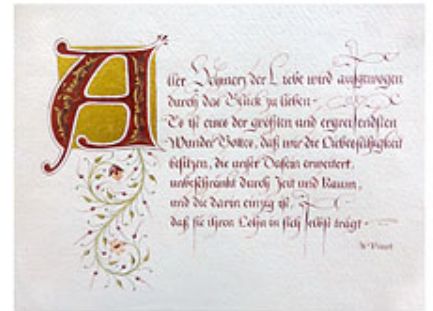 Aller Schmerz der Liebe wird aufgewogen
durch das Glück zu lieben -
Es ist eines der größten und ergreifendsten
Wunder Gottes, daß wir die Liebesfähigkeit
besitzen, die unser Dasein erweitert,
unbeschränkt durch Zeit und Raum,
und die darin einzig ist,
daß sie ihren Lohn in sich selbst trägt -